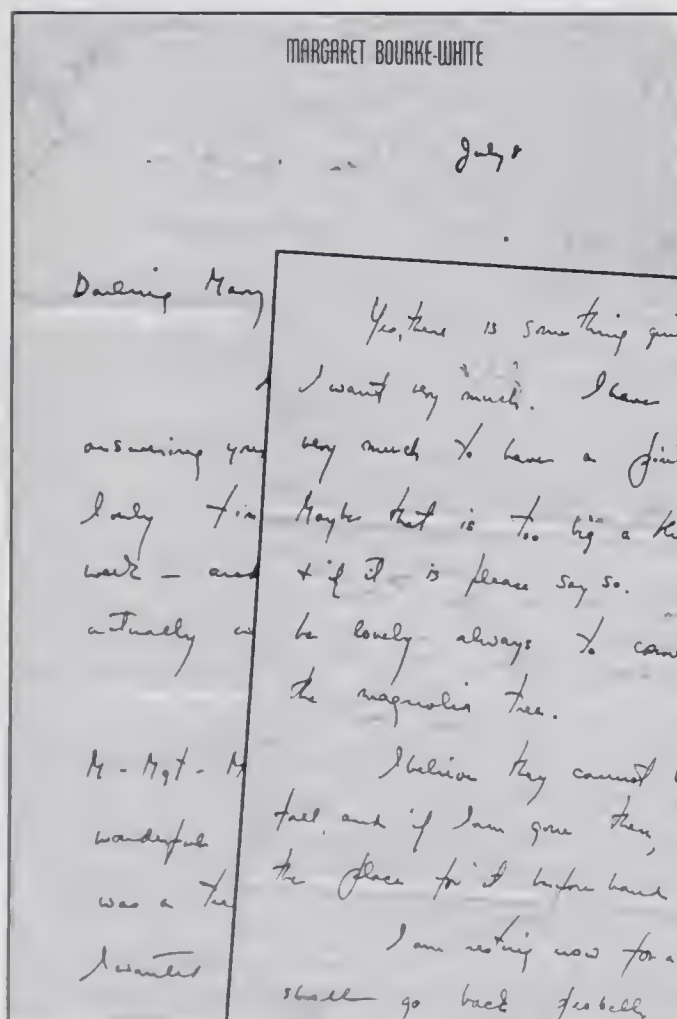 MARGARET BOURKE-WHITE
July 8
Darling Mary
answering your
I only
week - and
actually
M - Mgt - M
wonderful
was a tree
I wanted
Yes, there is something
I want very much. I have
very much to have a
Maybe that is too big a
& if it is please say so.
be lovely always to
the magnolia tree.
I believe they cannot
fall, and if I am gone then,
the place for it before hand
I am resting now for a
shall go back probably